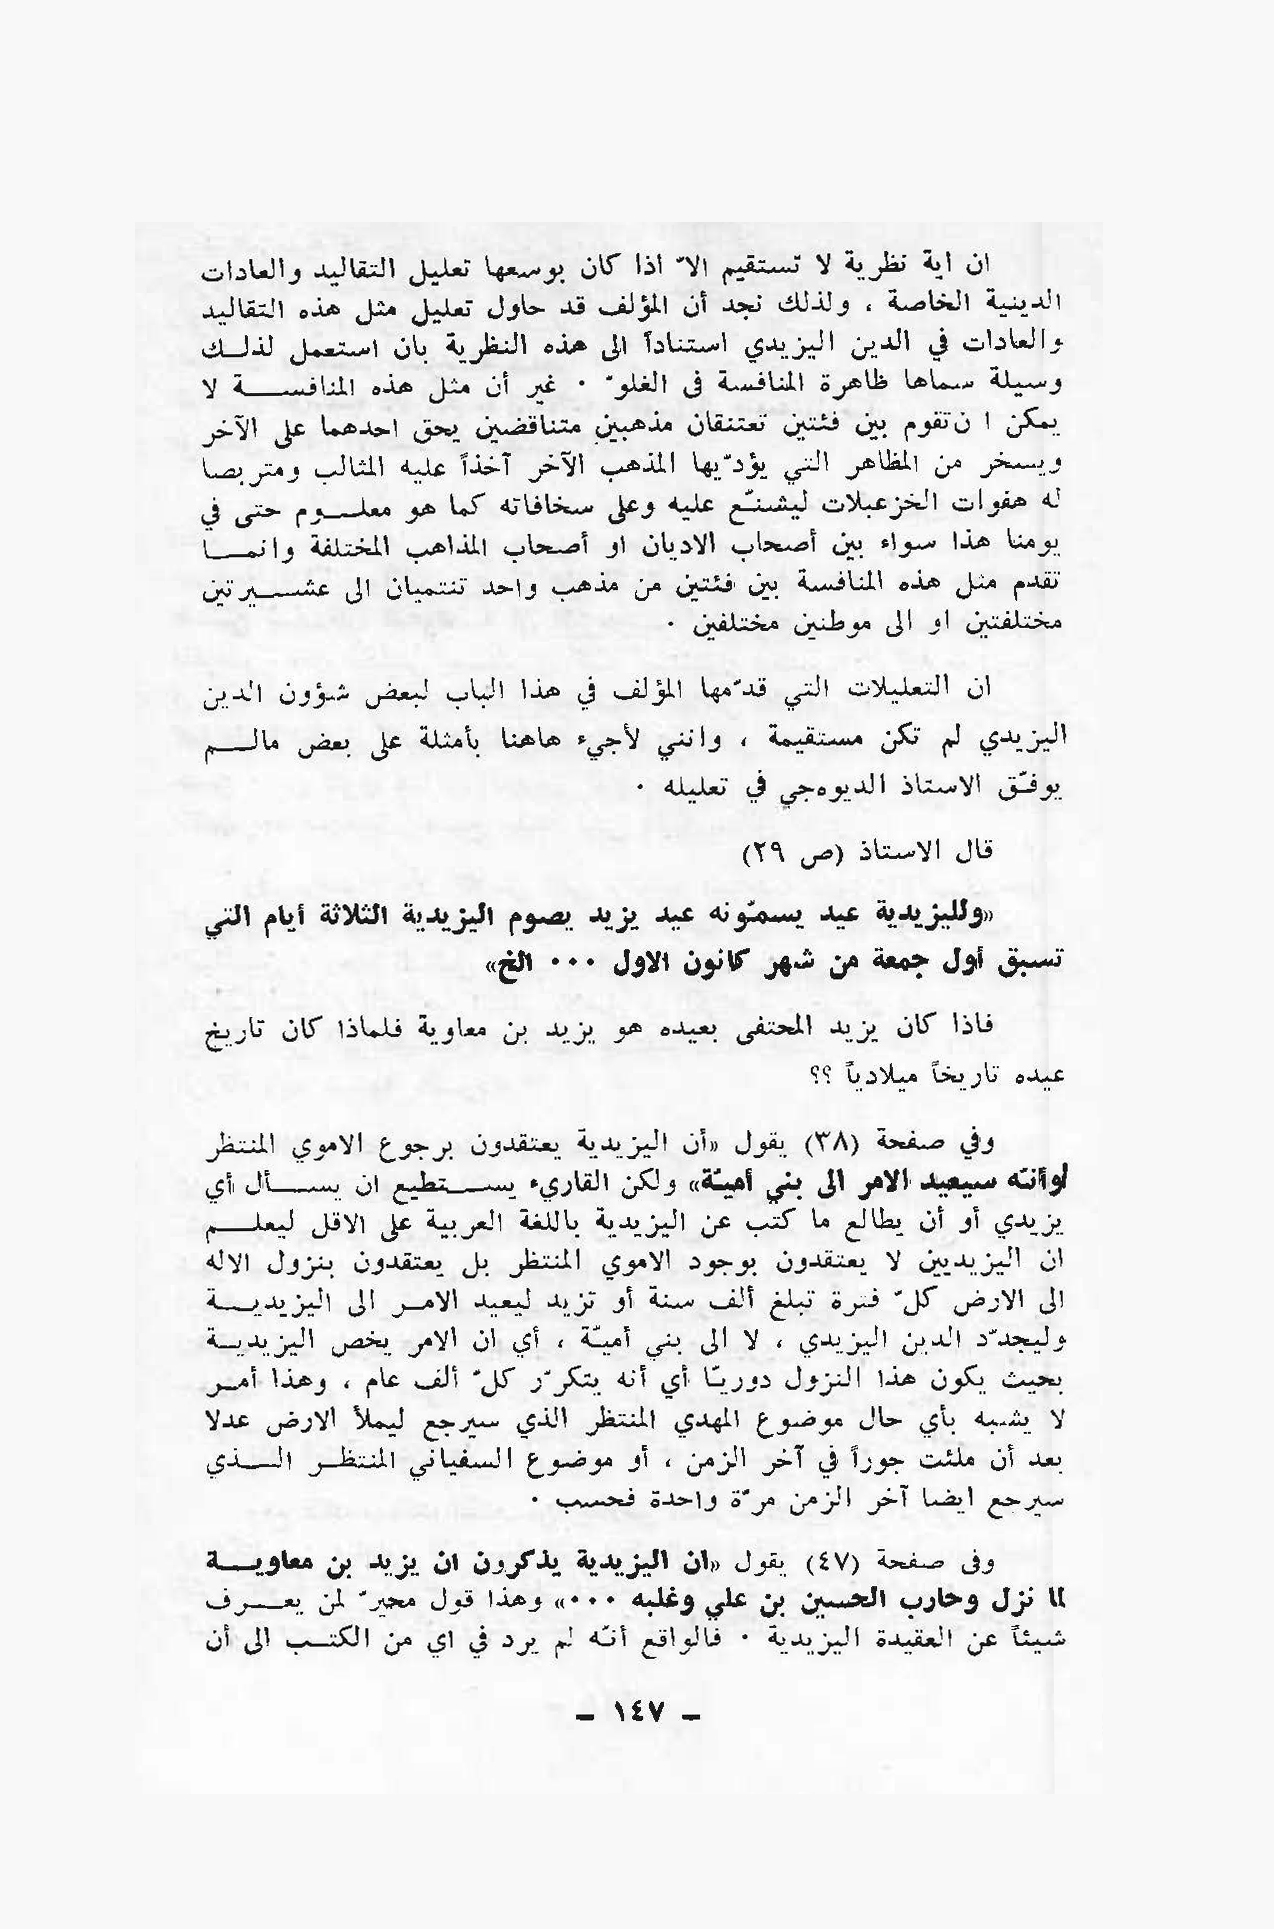 ان اية نظرية لا تستقيم الاّ اذا كان بوسعها تعليل التقاليد والعادات
الدينية الخاصة ، ولذلك نجد أن المؤلف قد حاول تعليل مثل هذه التقاليد
والعادات في الدين اليزيدي استناداً الى هذه النظرية بان استعمل لذلــك
وسيلة سماها ظاهرة المنافسة في الغلوّ ٠ غير أن مثل هذه المنافســـة لا
يمكن ا ن تقوم بين فئتين تعتنقان مذهبين متناقضين يحق احدهما على الآخر
ويسخر من المظاهر التي يؤدّيها المذهب الآخر آخذاً عليه المثالب ومتربصا
له هفوات الخزعبلات ليشنّع عليه وعلى سخافاته كما هو معلــوم حتى في
يومنا هذا سواء بين أصحاب الاديان او أصحاب المذاهب المختلفة وانمـــا
تقدم مثل هذه المنافسة بين فئتين من مذهب واحد تنتميان الى عشـــيرتين
مختلفتين او الى موطنين مختلفين ٠
ان التعليلات التي قدّمها المؤلف في هذا الباب لبعض شؤون الدين
اليزيدي لم تكن مستقيمة ، وانني لأجيء هاهنا بأمثلة على بعض مالـــم
يوفّق الاستاذ الديوه‌جي في تعليله ٠
قال الاستاذ (ص ٢٩)
«ولليزيدية عيد يسمّونه عيد يزيد يصوم اليزيدية الثلاثة أيام التي
تسبق أول جمعة من شهر كانون الاول ٠٠٠ الخ»
فاذا كان يزيد المحتفى بعيده هو يزيد بن معاوية فلماذا كان تاريخ
عيده تاريخاً ميلادياً ؟؟
وفي صفحة (٣٨) يقول «أن اليزيدية يعتقدون برجوع الاموي المنتظر
وأنّه سيعيد الامر الى بني أميّة» ولكن القاريء يســـتطيع ان يســـأل أي
يزيدي أو أن يطالع ما كتب عن اليزيدية باللغة العربية على الاقل ليعلـــم
ان اليزيديين لا يعتقدون بوجود الاموي المنتظر بل يعتقدون بنزول الاله
الى الارض كلّ فترة تبلغ ألف سنة أو تزيد ليعيد الامــر الى اليزيديـــة
وليجدّد الدين اليزيدي ، لا الى بني أميّة ، أي ان الامر يخص اليزيديــة
بحيث يكون هذا النزول دوريّا أي أنه يتكرّر كلّ ألف عام ، وهذا أمــر
لا يشبه بأي حال موضوع المهدي المنتظر الذي سيرجع ليملأ الارض عدلا
بعد أن ملئت جوراً في آخر الزمن ، أو موضوع السفياني المنتظــر الـــذي
سيرجع ايضا آخر الزمن مرّة واحدة فحسب ٠
وفى صفحة (٤٧) يقول «ان اليزيدية يذكرون ان يزيد بن معاويـــة
لما نزل وحارب الحسين بن علي وغلبه ٠٠٠» وهذا قول محيرّ لمن يعـــرف
شيئاً عن العقيدة اليزيدية ٠ فالواقع أنّه لم يرد في اي من الكتــب الى أن
– ١٤٧ –